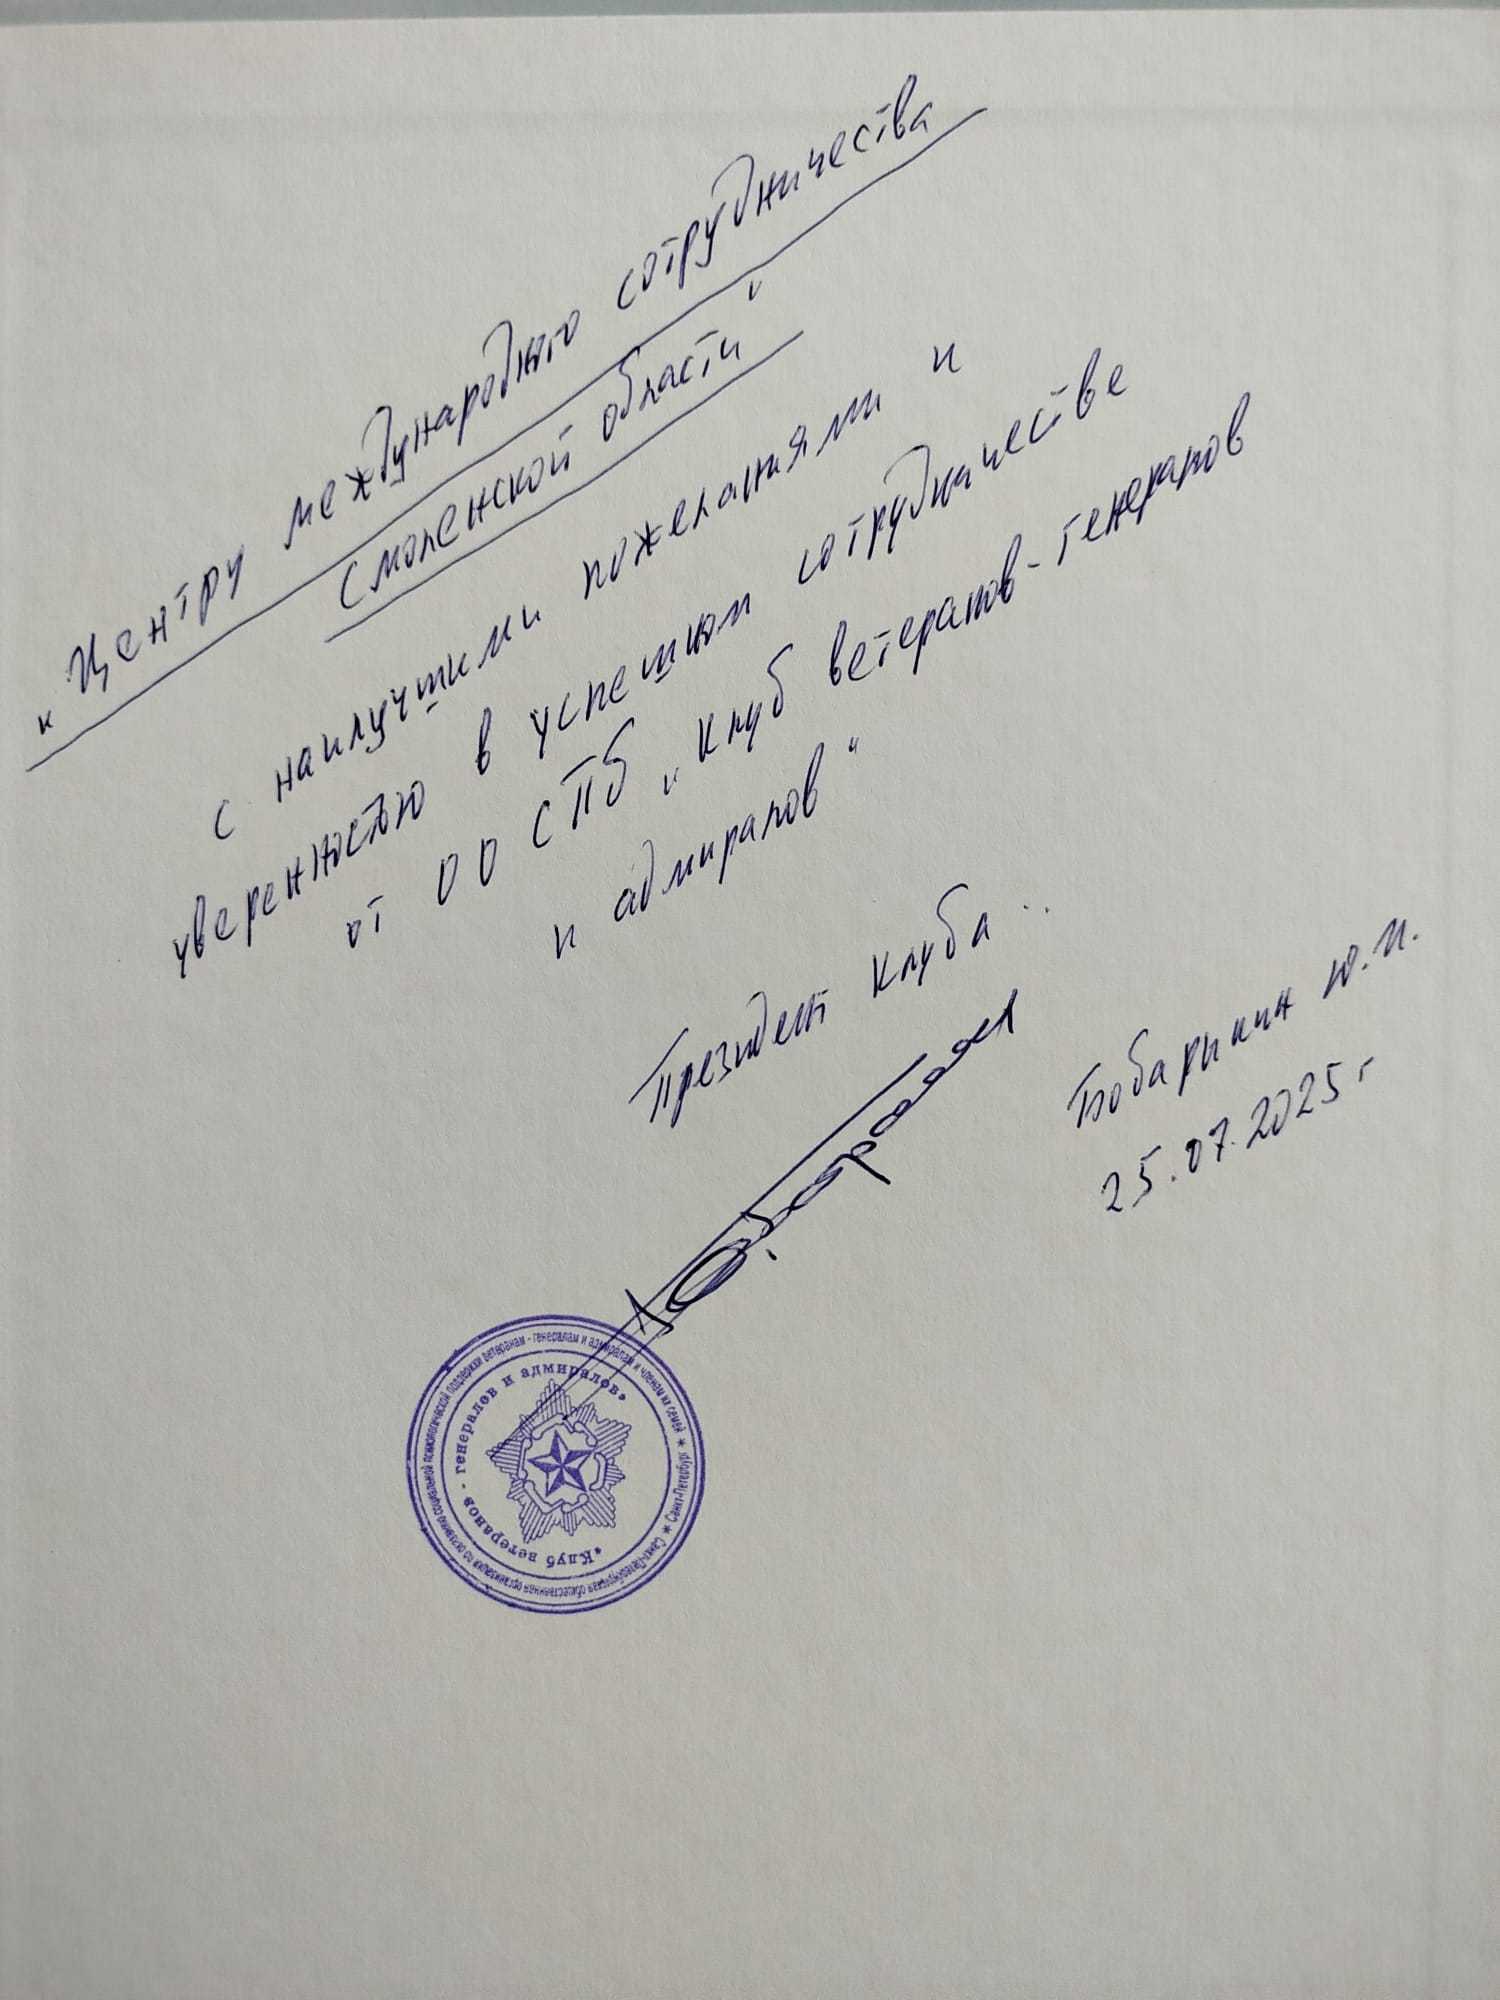 "Центру международного сотрудничества
Смоленской области"
с наилучшими пожеланиями и
уверенностью в успешном сотрудничестве
от ОО СПБ "Клуб ветеранов-генералов
и адмиралов"
Президент Клуба
Бобарыкин Ю.И.
25.07.2025г
Санкт-Петербургская общественная организация по оказанию социальной психологической поддержки ветеранам - генералам и адмиралам и членам их семей * Санкт-Петербург *
«Клуб ветеранов - генералов и адмиралов»